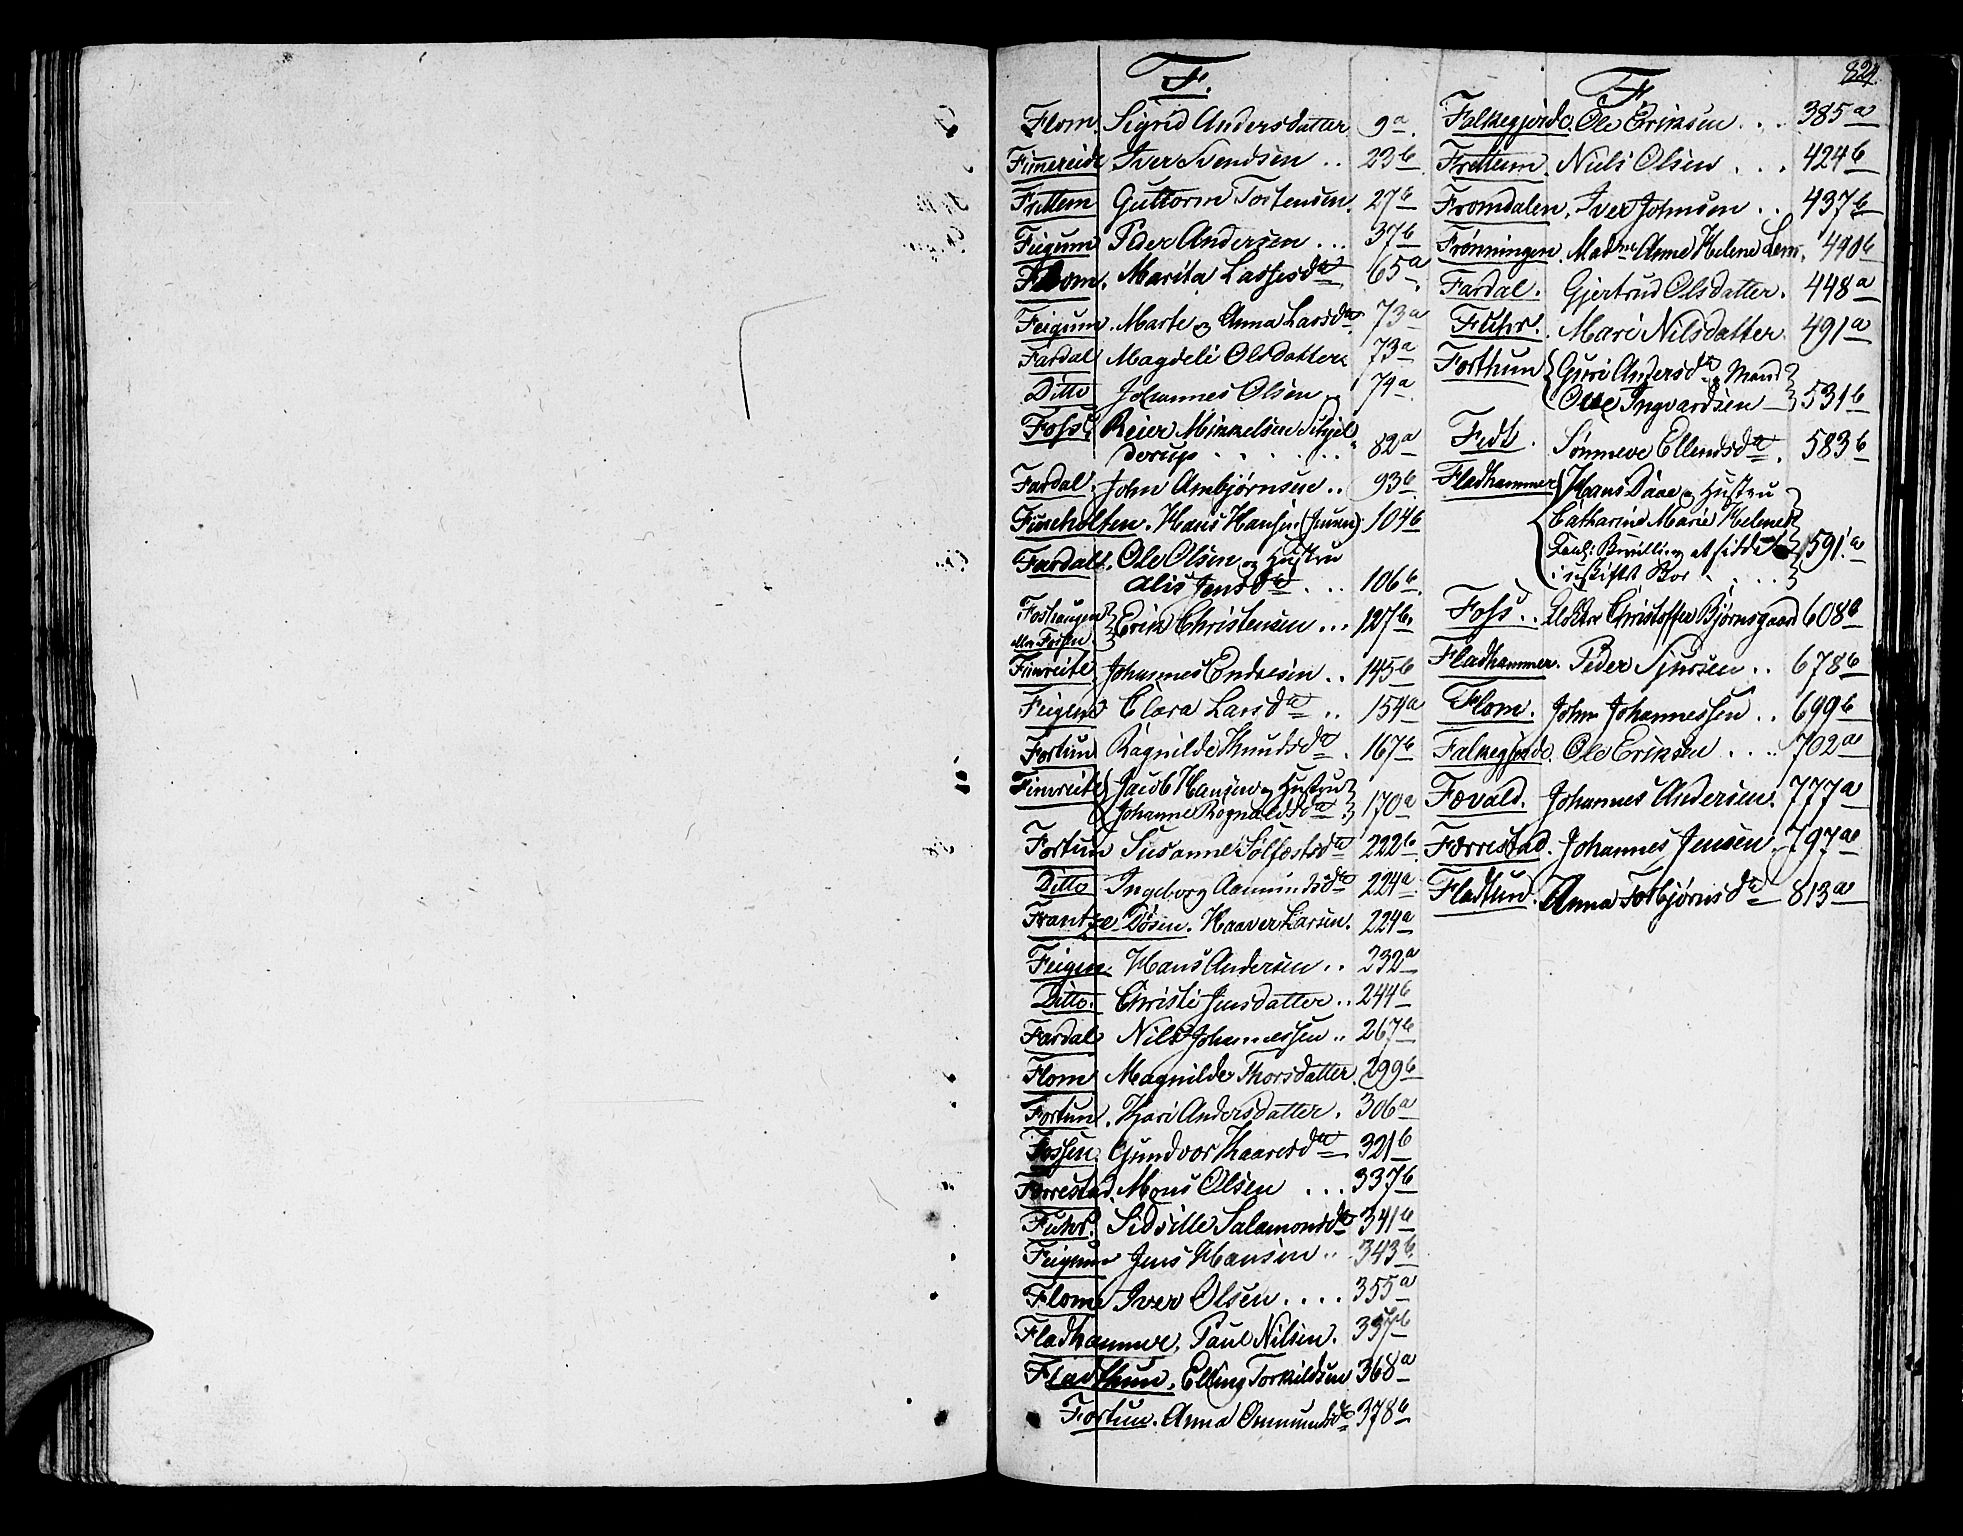 824.
F.
Flom. Sigrid Andersdatter 9a.
Fimreide Iver Svendsen .. 23b
Frettem Guttorm Tostensen. 27b
Feigum Peder Andersen ... 37b
Flom. Marita Lassesda 65a
Feigum. Marte og Anna Larsda 73a
Fardal Magdeli Olsdatter 73a
Ditto Johannes Olsen 74a
Foss. Reier Mikkelsen Schjel
derup . . . . . . 82a
Fardal. John Ambjørnsen .. 93b
Fimeholten. Hans Hansen (Jensen). 104b
Fardal. Ole Olsen og Hustru
Alis Jensda . . . 106b.
Foshaugen
eller Fossen Erik Christensen ... 127b.
Fimreite Johannes Endresen .. 145b
Feigen Clara Larsda .. 154a
Fortun Ragnilde Knudsda . 167b
Fimreite Jacob Hansen og Hustru
Johanne Rognaldsda 170a
Fortun Susanne Solfestsda 222b
Ditto Ingeborg Aamundsda 224a
Frantze-Døsen. Haaver Larsen. 224a
Feigen Hans Andersen .. 232a
Ditto. Christi Jensdatter .. 244b
Fardal Nils Johannessen .. 267b
Flom Magnilde Thorsdatter 299b
Fortun. Kari Andersdatter. 306a
Fossen. Gundvor Kaaresda 321b
Forrestad. Mons Olsen ... 337b
Fuhr. Sidsille Salamonsda 341b
Feigum Jens Hansen .. 343b
Flom Iver Olsen .... 355a
Fladhammer. Paul Nilsen. 357b
Fladthun. Elling Torkildsen 368a
Fortun. Anna Ommundsda 378b
F
Falkegjerde. Ole Eriksen . . . 385a
Frettum. Niels Olsen . . . 424b
Fromdalen. Iver Johnsen . . 437b
Frønningen. Madme Anne Helene Lem. 440b
Fardal. Gjertrud Olsdatter. 448a
Fuhr. Mari Nilsdatter 491a
Forthun Guri Andersda og Mand
Ole Ingvardsen 531b
Fedt. Synneve Ellendsda. 583b
Fladhammer Hans Daae og Hustru
Catharine Marie Helenes
Bevilling at sidde
i uskiftet Boe . . . . 591a
Foss. . Christoffer Bjørnsgaard 608b
Fladhammer. Peder Sjursen .. 678b
Flom. John Johannessen .. 699b
Falkegjerde. Ole Eriksen . . .. 702a
Fovald. Johannes Andersen. 777a
Forrestad. Johannes Jensen. 797a
Fladtun. Anna Torbjørnsda 813a